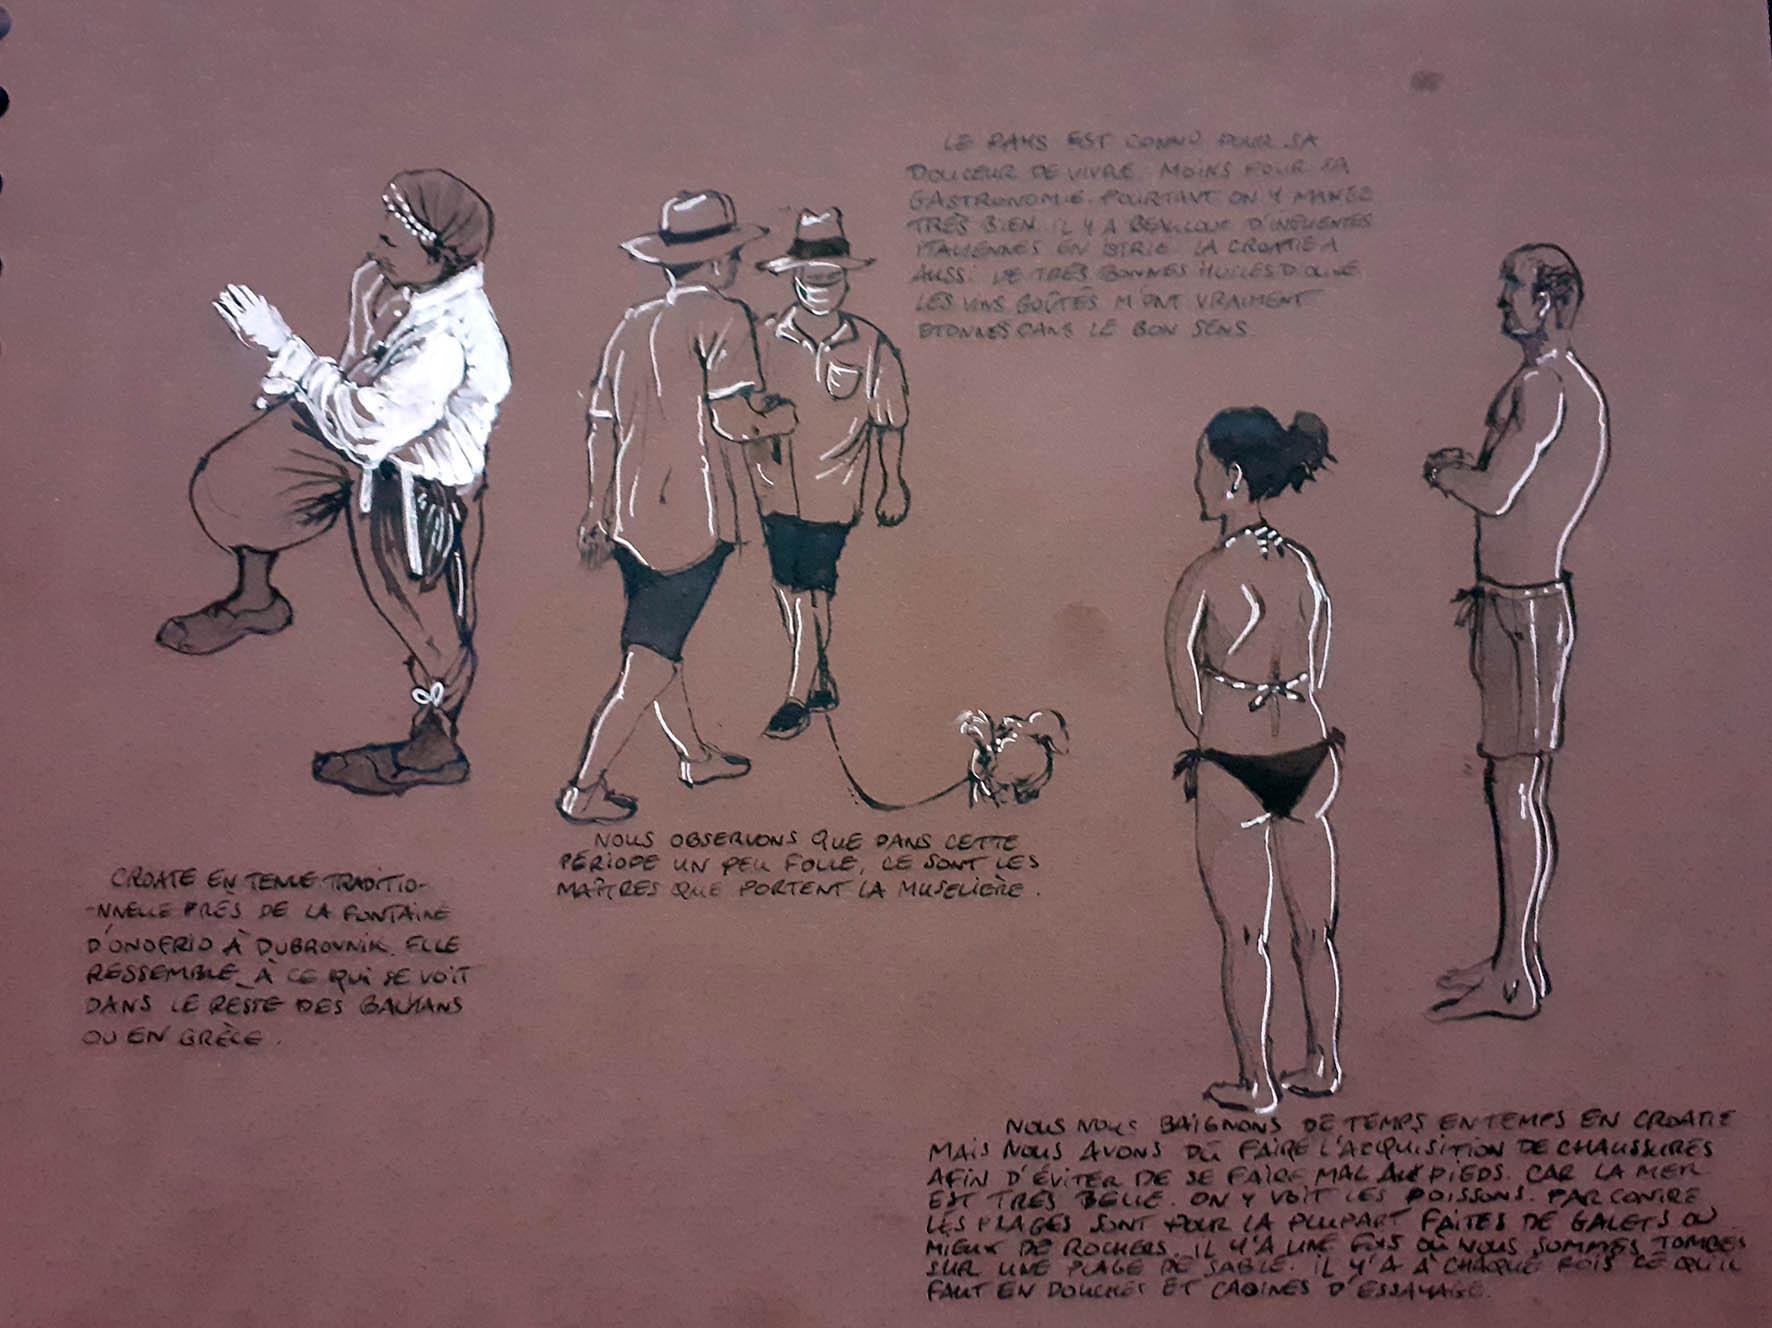 LE PAYS EST CONNU POUR SA
DOUCEUR DE VIVRE. MOINS POUR SA
GASTRONOMIE. POURTANT ON Y MANGE
TRÈS BIEN. IL Y A BEAUCOUP D'INFLUENTES
ITALIENNES EN ISTRIE. LA CROATIE A
AUSSI DE TRÈS BONNES HUILES D'OLIVE.
LES VINS GOÛTÉS M'ONT VRAIMENT
ETONNES DANS LE BON SENS.
NOUS OBSERVONS QUE DANS CETTE
PÉRIODE UN PEU FOLLE, CE SONT LES
MAÎTRES QUE PORTENT LA MUSELIÈRE.
CROATE EN TENUE TRADITIO-
-NNELLE PRÈS DE LA FONTAINE
D'ONOFRIO À DUBROVNIK. ELLE
RESSEMBLE À CE QUI SE VOIT
DANS LE RESTE DES BALKANS
OU EN GRÈCE.
NOUS NOUS BAIGNONS DE TEMPS EN TEMPS EN CROATIE
MAIS NOUS AVONS DÛ FAIRE L'ACQUISITION DE CHAUSSURES
AFIN D'ÉVITER DE SE FAIRE MAL AUX PIEDS. CAR LA MER
EST TRÈS BELLE. ON Y VOIT LES POISSONS. PAR CONTRE
LES PLAGES SONT POUR LA PLUPART FAITES DE GALETS OU
MIEUX DE ROCHERS. IL Y'A UNE FOIS OÙ NOUS SOMMES TOMBES
SUR UNE PLAGE DE SABLE. IL Y'A À CHAQUE FOIS CE QU'IL
FAUT EN DOUCHES ET CABINES D'ESSAYAGE.